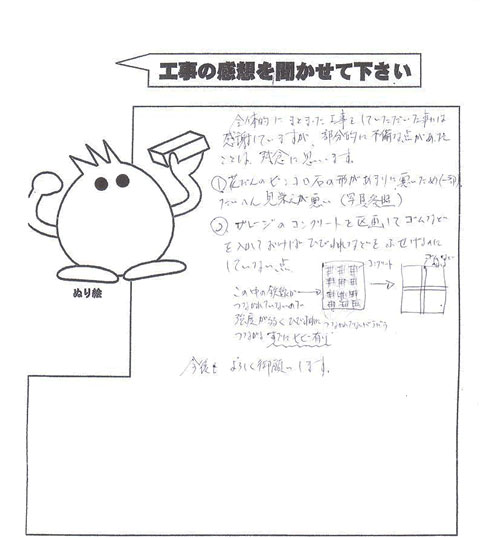 工事の感想を聞かせて下さい
全体的にまとまった工事をしていただいた事には
感謝していますが、部分的に不備な点があった
ことは、残念に思います。
①花だんのピンコロ石の形があまりに悪いため(一部)
たいへん見栄えが悪い(写真参照)
②ガレージのコンクリートを区画してゴムなど
を入れておけばひび割れなどをふせげるのに
していない点
コンクリート
この中の鉄線が
つながれていないので
強度が弱くひび割れに
つながる すでにヒビ有り
今後も よろしく御願いします。
ぬり絵